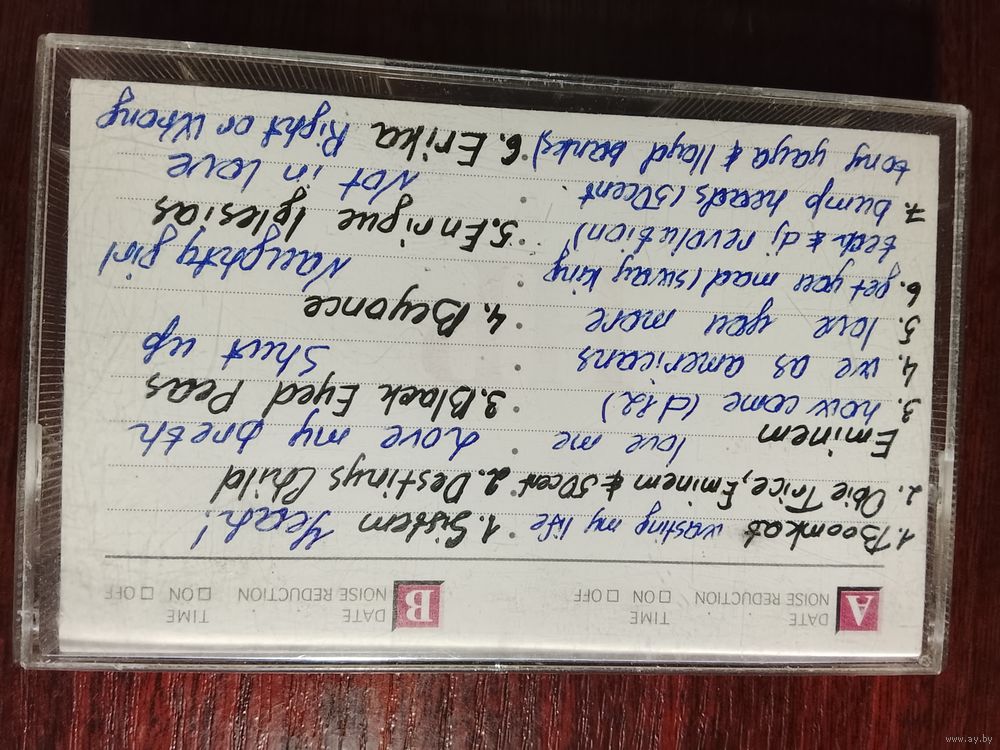 A DATE
NOISE REDUCTION
TIME
☐ ON ☐ OFF
1. Boomkat wasting my life
2. Obie Trice, Eminem & 50cent
love me
Eminem
3. how come (d12)
4. we as americans
5. love you more
6. get you mad (sway king
tech & dj revolution)
7. bump heads (50cent
tony yaya & lloyd banks)
B DATE
NOISE REDUCTION
TIME
☐ ON ☐ OFF
1. Sistem Yeah!
2. Destinys Child
Love my breth
3. Black Eyed Peas
Shut up
4. Beyonce
Naughty girl
5. Enrique Iglesias
Not in love
6. Erika Right or Whong
www.ay.by